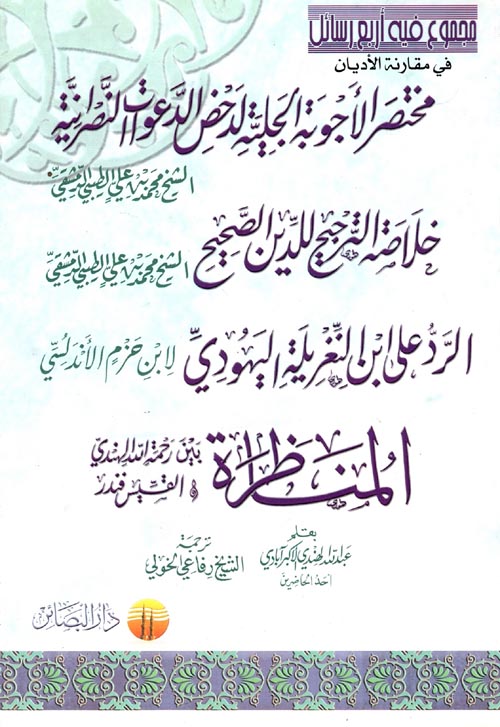 مجموع فيه أربع رسائل
في مقارنة الأديان
مختصر الأجوبة الجلية لدحض الدعوات النصرانية
الشيخ محمد بن علي الطيبي الدمشقي
خلاصة الترجيح للدين الصحيح
الشيخ محمد بن علي الطيبي الدمشقي
الرد على ابن النغريلة اليهودي لابن حزم الأندلسي
المناظرة بين رحمة الله الهندي
و القسيس فندر
بقلم
عبد الله الهندي الأكبر آبادي
أحد الحاضرين
ترجمة
الشيخ رفاعي الخولي
دار البصائر